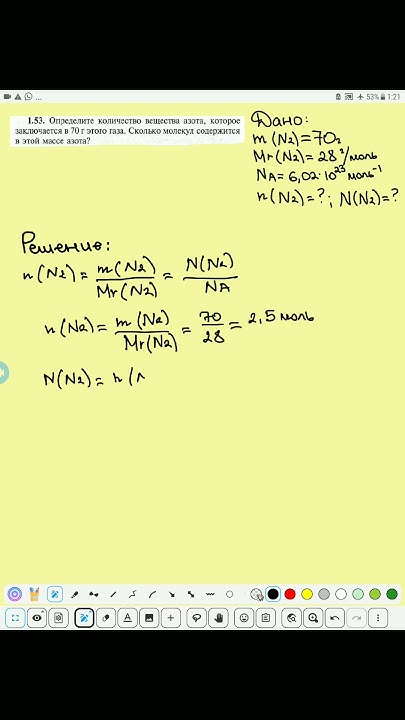 53% 1:21
1.53. Определите количество вещества азота, которое
заключается в 70 г этого газа. Сколько молекул содержится
в этой массе азота?
Дано:
m(N₂)=70г
Mr(N₂)=28 г/моль
NA=6,02·10²³ моль⁻¹
n(N₂)=?; N(N₂)=?
Решение:
n(N₂)= m(N₂)/Mr(N₂) = N(N₂)/NA
n(N₂)= m(N₂)/Mr(N₂) = 70/28 = 2,5 моль
N(N₂)= n(